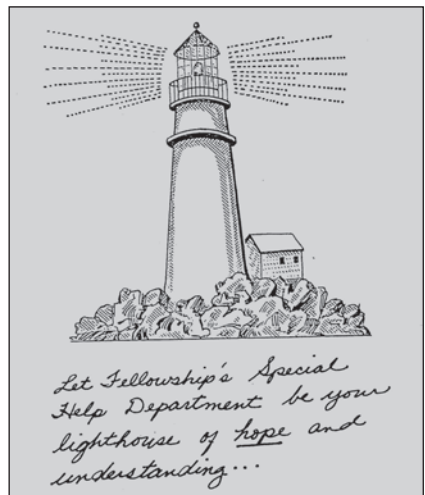 Let Fellowship's Special
Help Department be your
lighthouse of hope and
understanding...